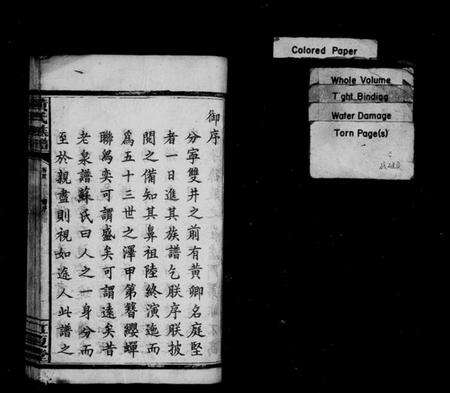 御序
分寧雙井之前有黃卿名庭堅
者一日進其族譜乞朕序朕披
閱之備知其鼻祖陸終演迤而
為五十三世之澤甲第簪纓蟬
聯為奕可謂盛矣可謂遠矣昔
老泉譜蘇氏曰人之一身分而
至於親盡則視如途人此譜之
Colored Paper
Whole Volume
Tight Binding
Water Damage
Torn Page(s)